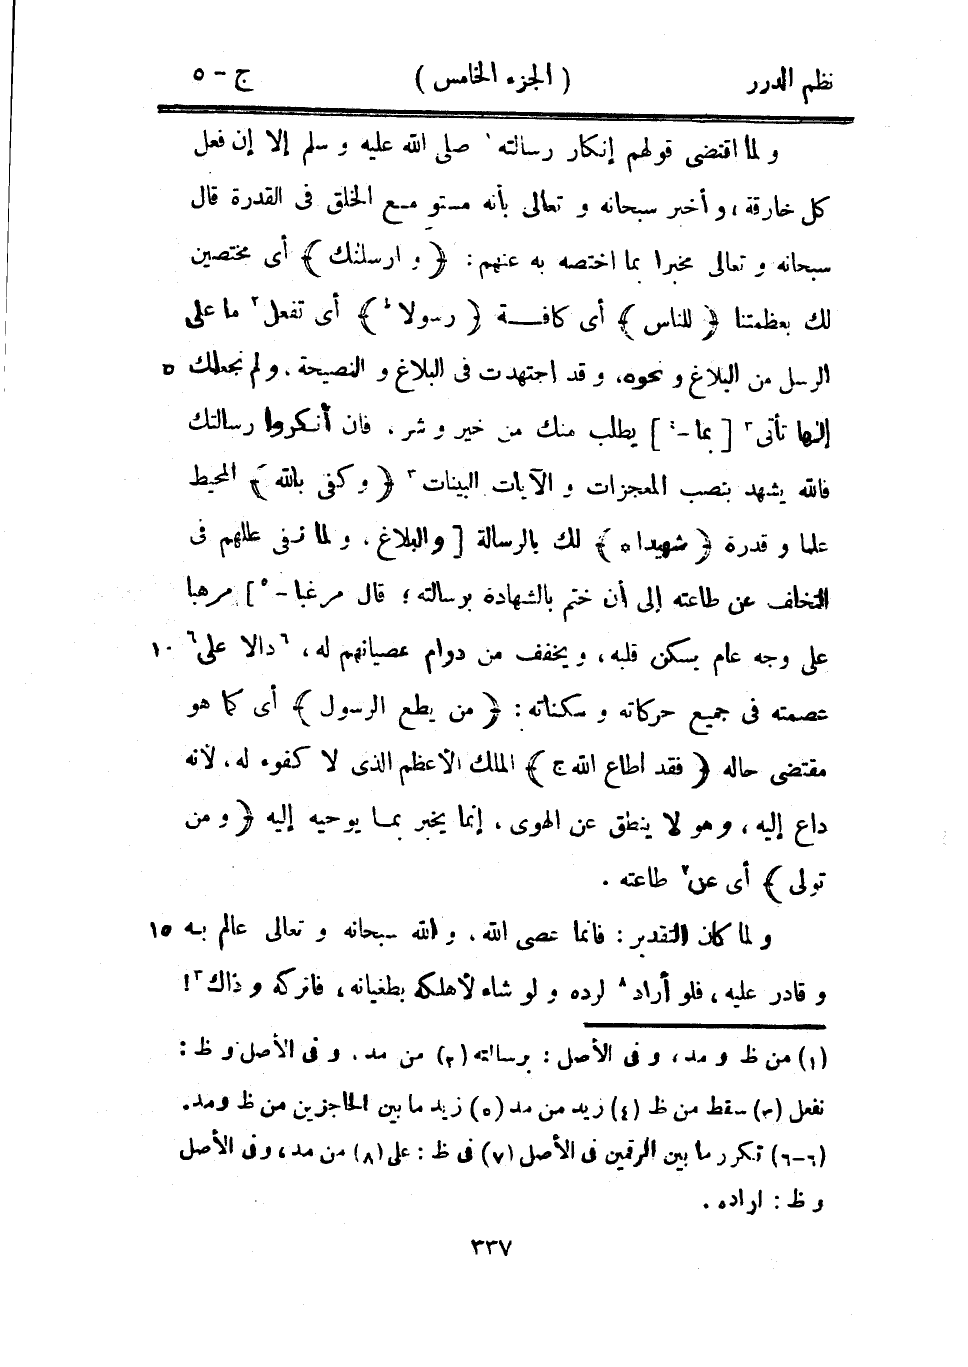 نظم الدرر ( الجزء الخامس ) ج - ٥
و لما اقتضى قولهم إنكار رسالته ١ صلى الله عليه و سلم إلا إن فعل
كل خارقة ، و أخبر سبحانه و تعالى بأنه مستو مع الخلق فى القدرة قال
سبحانه و تعالى مخبرا بما اختصه به عنهم : ﴿ و ارسلنٰك ﴾ أى مختصين
لك بعظمتنا ﴿ للناس ﴾ أى كافــة ﴿ رسولا ط ﴾ أى تفعل ٢ ما على
الرسل من البلاغ و نحوه، و قد اجتهدت فى البلاغ و النصيحة . و لم نجعلك ٥
إلٰها تأتى ٣ [ بما - ٤ ] يطلب منك من خير و شر . فان أنكروا رسالتك
فالله يشهد بنصب المعجزات و الآيات البينات ٣ ﴿ و كفى بالله ﴾ المحيط
علما و قدرة ﴿ شهيدا ه ﴾ لك بالرسالة [ والبلاغ . و لما نفى عللهم فى
التخلف عن طاعته إلى أن ختم بالشهادة برسالته ؛ قال مرغبا - ٥ ] مرهبا
على وجه عام يسكن قلبه ، و يخفف من دوام عصيانهم له ، ٦ دالا على ٦ ١٠
عصمته فى جميع حركاته و سكناته : ﴿ من يطع الرسول ﴾ أى كما هو
مقتضى حاله ﴿ فقد اطاع الله ج ﴾ الملك الأعظم الذى لا كفوء له . لأنه
داع إليه ، وهو لا ينطق عن الهوى . إنما يخبر بما يوحيه إليه ﴿ و من
تولى ﴾ أى عن ٧ طاعته .
و لما كان التقدير : فانما عصى الله . و الله سبحانه و تعالى عالم به ١٥
و قادر عليه ، فلو أراد ٨ لرده و لو شاء لأهلكه بطغيانه ، فاتركه و ذاك ٣ !
(١) من ظ و مد ، و فى الأصل : برسالته (٢) من مد . و فى الأصل و ظ :
نفعل (٣) سقط من ظ (٤) زيد من مد (٥) زيد ما بين الحاجزين من ظ ومد .
(٦-٦) تكرر ما بين الرقمين فى الأصل (٧) فى ظ : على (٨) من مد ، وفى الأصل
و ظ : اراده .
٣٣٧